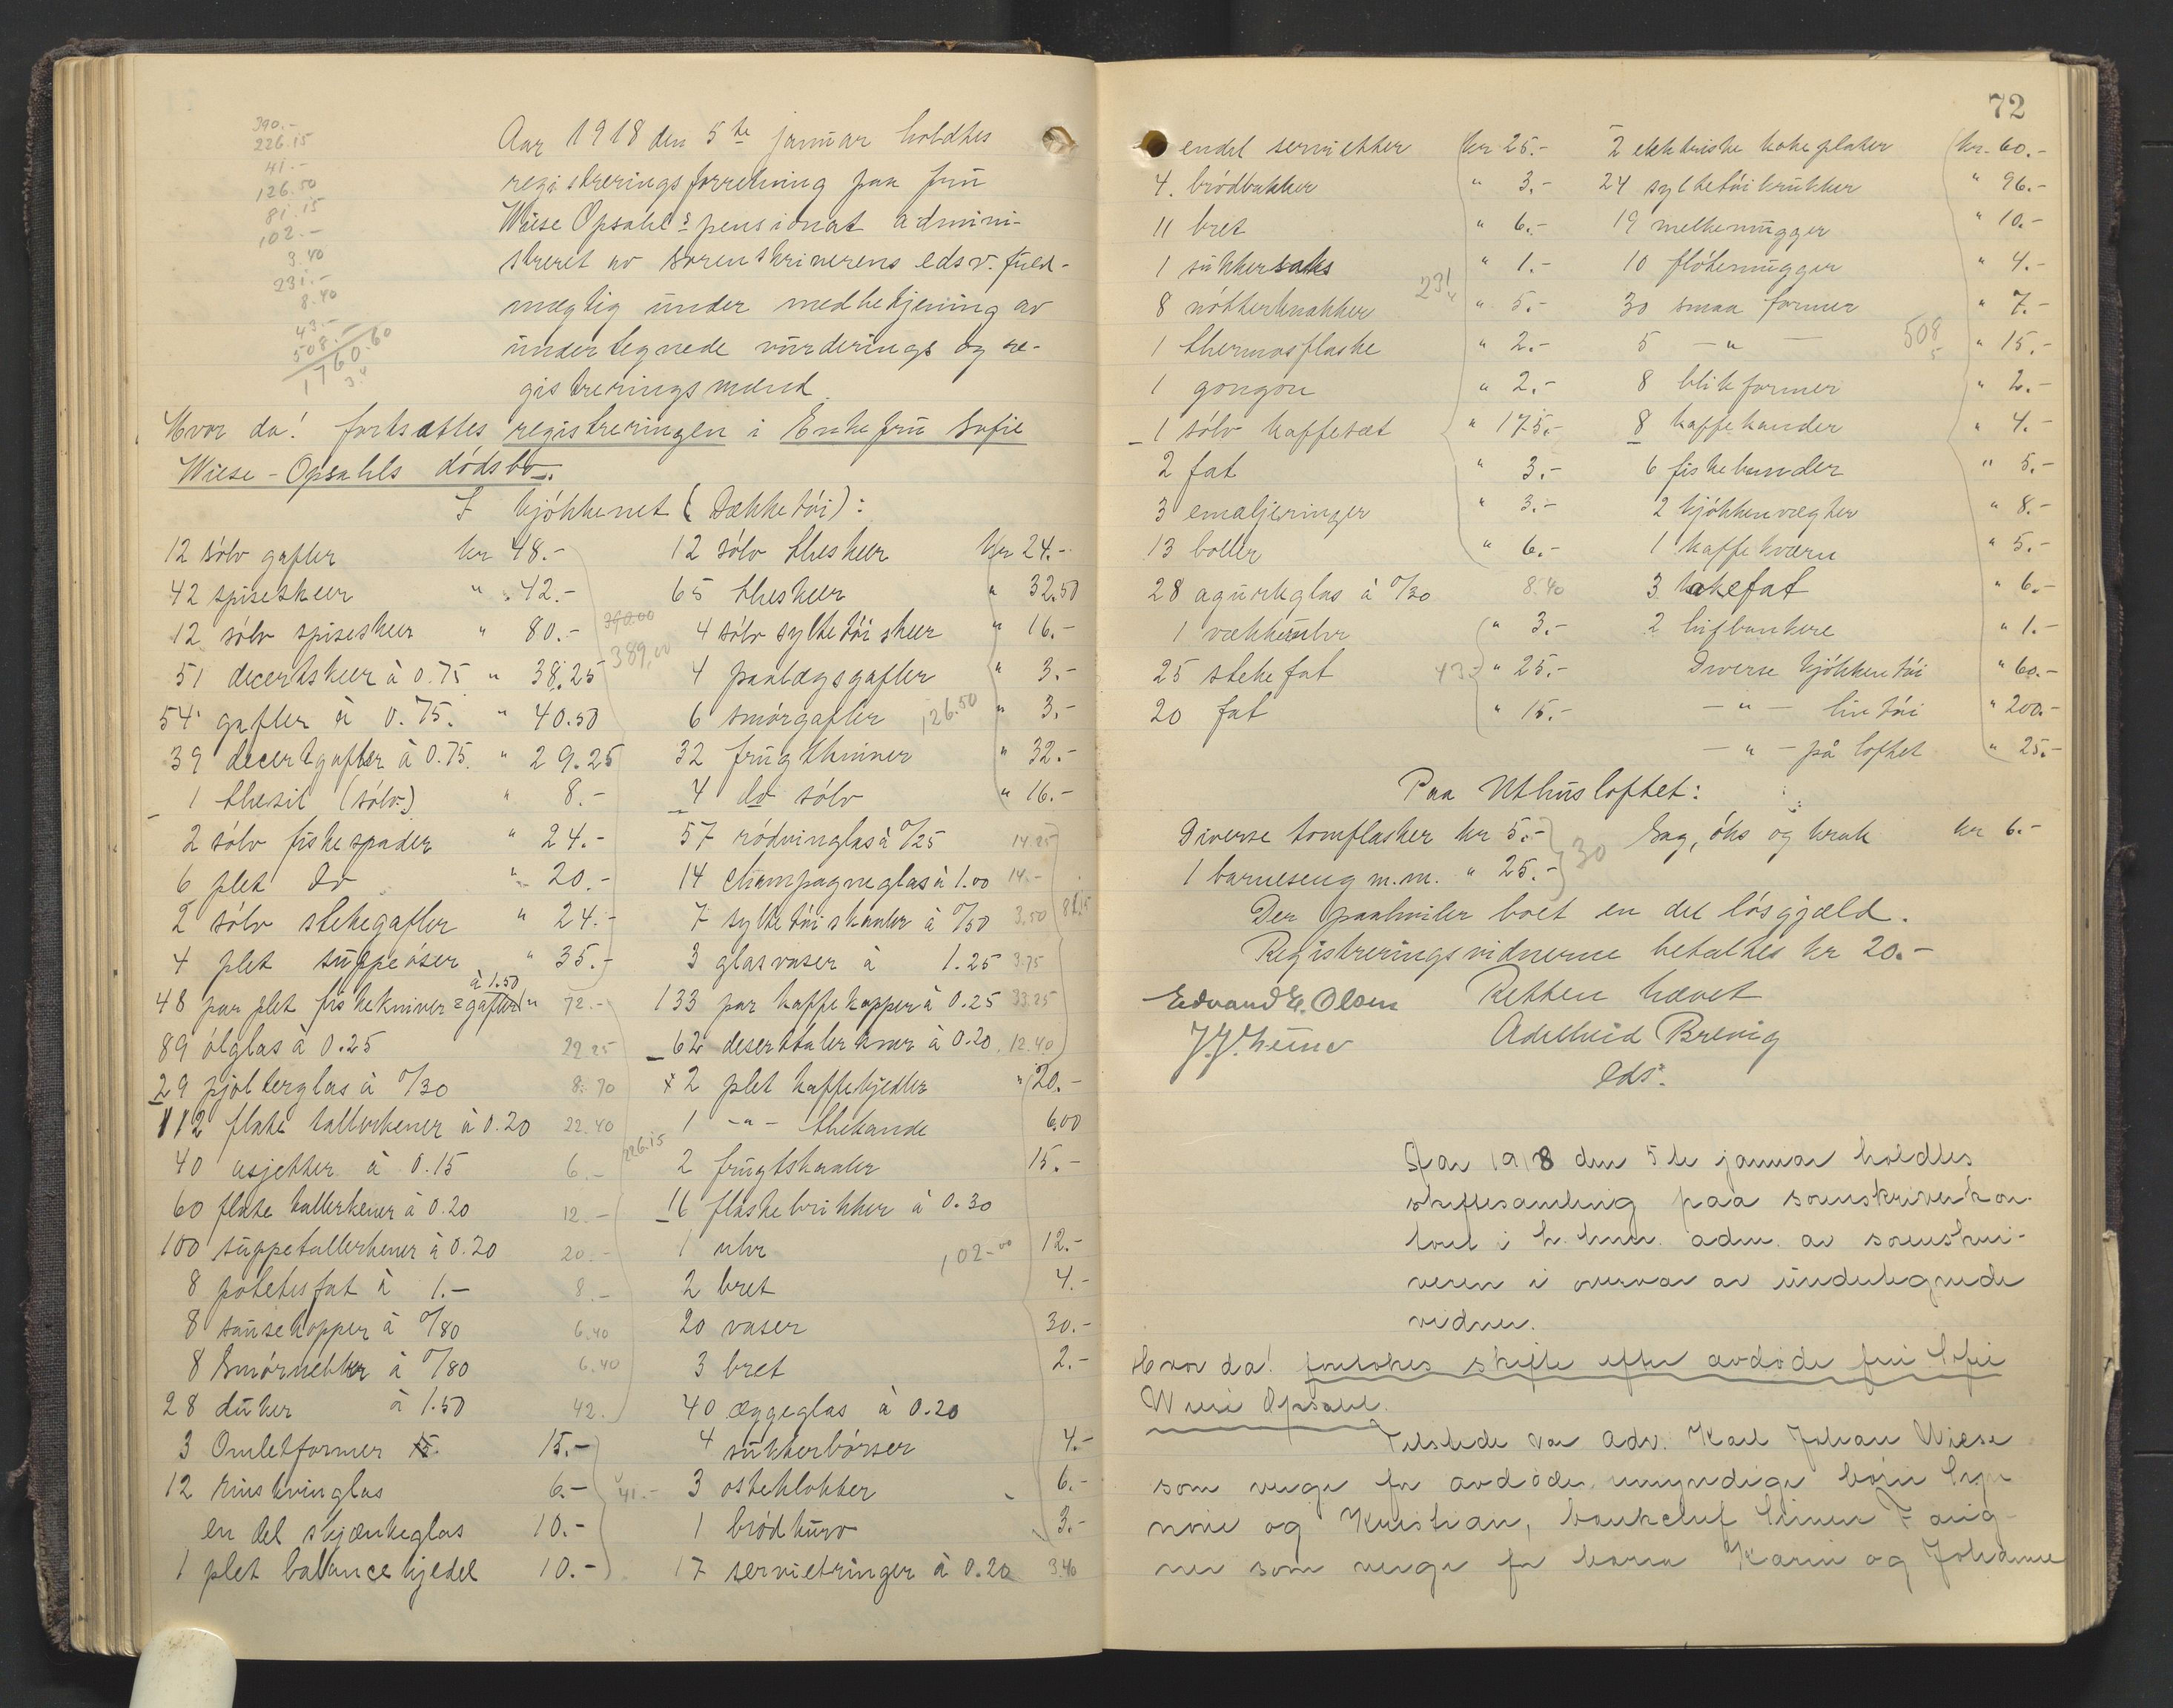 390.-
226.15
41.-
126.50
81.15
102.-
3.40
231.-
8.40
43.-
508.-
1760.60
Aar 1918 den 5te januar holdtes
registreringsforretning paa fru
Wiese Opsahls pensionat admini-
streret av sorenskriverens edsv. fuld-
mægtig under medbetjening av
undertegnede vurderings og re-
gistreringsmænd.
Hvor da! fortsættes registreringen i Enkefru Sofie
Wiese-Opsahls dödsbo.
I kjökkenet (Dækketöi):
12 sölv gafler kr 48.-
42 spiseskeer " 42.-
12 sölv spiseskeer " 80.-
390.00
389,00
51 decertskeer à 0.75 " 38.25
54 gafler à 0.75. " 40.50
39 decertgafler à 0.75. " 29.25
1 thesil (sölv.) " 8.-
2 sölv fiskespader " 24.-
6 plet do " 20.-
2 sölv stekegafler " 24.-
4 plet suppeöser " 35.-
48 par plet fiskekniver = gafler à 1.50 " 72.-
89 ölglas à 0.25 22.25
29 pjolterglas à 0/30 8.70
112 flate tallerkener à 0.20 22.40
226.15
40 asjetter à 0.15 6.-
60 flate tallerkener à 0.20 12.-
100 suppetallerkener à 0.20 20.-
8 potetesfat à 1.- 8.-
8 sausekopper à 0/80 6.40
8 Smörnebber à 0/80 6.40
28 duker à 1.50 42.
3 Omletformer 15.-
12 Rinskvinglas 6.-
41.-
en del skjænkeglas 10.-
1 plet balancekjedel 10.-
12 sölv theskeer Kr 24.-
65 theskeer " 32.50
4 sölv syltetöi skeer " 16.-
4 paalægsgafler " 3.-
6 smörgafler " 3.-
126.50
32 frugtkniver " 32.-
4 do sölv " 16.-
57 rödvinglas à 0/25 14.25
14 champagneglas à 1.00 14.-
7 syltetöi skaaler à 0/50 3.50
81.15
3 glasvaser à 1.25 3.75
133 par kaffekopper à 0.25 33.25
62 deserttalerkner à 0.20 12.40
x 2 plet kaffekjedler " 20.-
1 -"- thekande 6.00
2 frugtskaaler 15.-
16 flaskebrikker à 0.30
1 uhr 12.-
102.00
2 bret 4.-
20 vaser 30.-
3 bret 2.-
40 æggeglas à 0.20
4 sukkerbörser 4.-
3 osteklokker 6.-
1 brödkurv 3.-
17 servietringer à 0.20 3.40
72
endel servietter kr 25.-
4. brödbakker " 3.-
11 bret " 6.-
1 sukkersaks " 1.-
231
8 nötteknakker " 5.-
1 thermosflaske " 2.-
1 gongon " 2.-
1 sölv kaffesæt " 175.-
2 fat " 3.-
3 emaljeringer " 3.-
13 boller " 6.-
28 agurkglas à 0/30 8.40
1 vækkeruhr " 3.-
25 stekefat " 25.-
43.-
20 fat " 15.-
2 elektriske kokeplater kr. 60.-
24 syltetöikrukker " 96.-
19 melkemugger " 10.-
10 flötemugger " 4.-
30 smaa former " 7.-
508
5 -"- " 15.-
8 blikformer " 2.-
8 kaffekander " 4.-
6 fiskebunder " 5.-
2 kjökkenvegter " 8.-
1 kaffekværn " 5.-
3 kakefat " 6.-
2 bifbankere " 1.-
Diverse kjökkentöi " 60.-
-"- lintöi " 200.-
-"- på loftet " 25.-
Paa Uthusloftet:
Diverse tomflasker kr 5.-
30
Sag, öks og krak kr 6.-
1 barneseng m.m. " 25.-
Der paahviler boet en del lösgjæld.
Registreringsvidnerne betaltes kr 20.-
Edvard E. Olsen Retten hævet
Adelheid Brevig
eds.
Aar 1918 den 5te januar holdtes
skiftesamling paa sorenskriverkon-
toret i L.hmr. adm. av sorenskri-
veren i overvær av undertegnede
vidner.
Hvor da! foretokes skifte efter avdöde fru Sofie
Wiese Opsahl.
Tilstede var adv. Karl Johan Wiese
som verge for avdödes umyndige börn
og Kristian, bankchef
som verge for barna Karin og Johanne